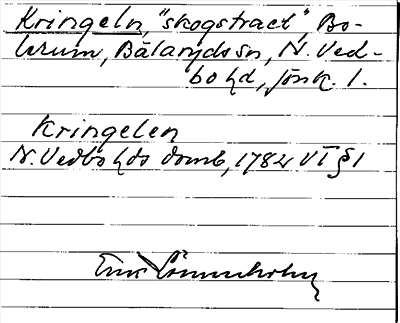 Kringeln, "skogstract", Bo-
lerum, Bälaryds sn, N. Ved-
bo hd, Jönk. l.
Kringelen
N. Vedbo hds domb, 1784 VI § 1